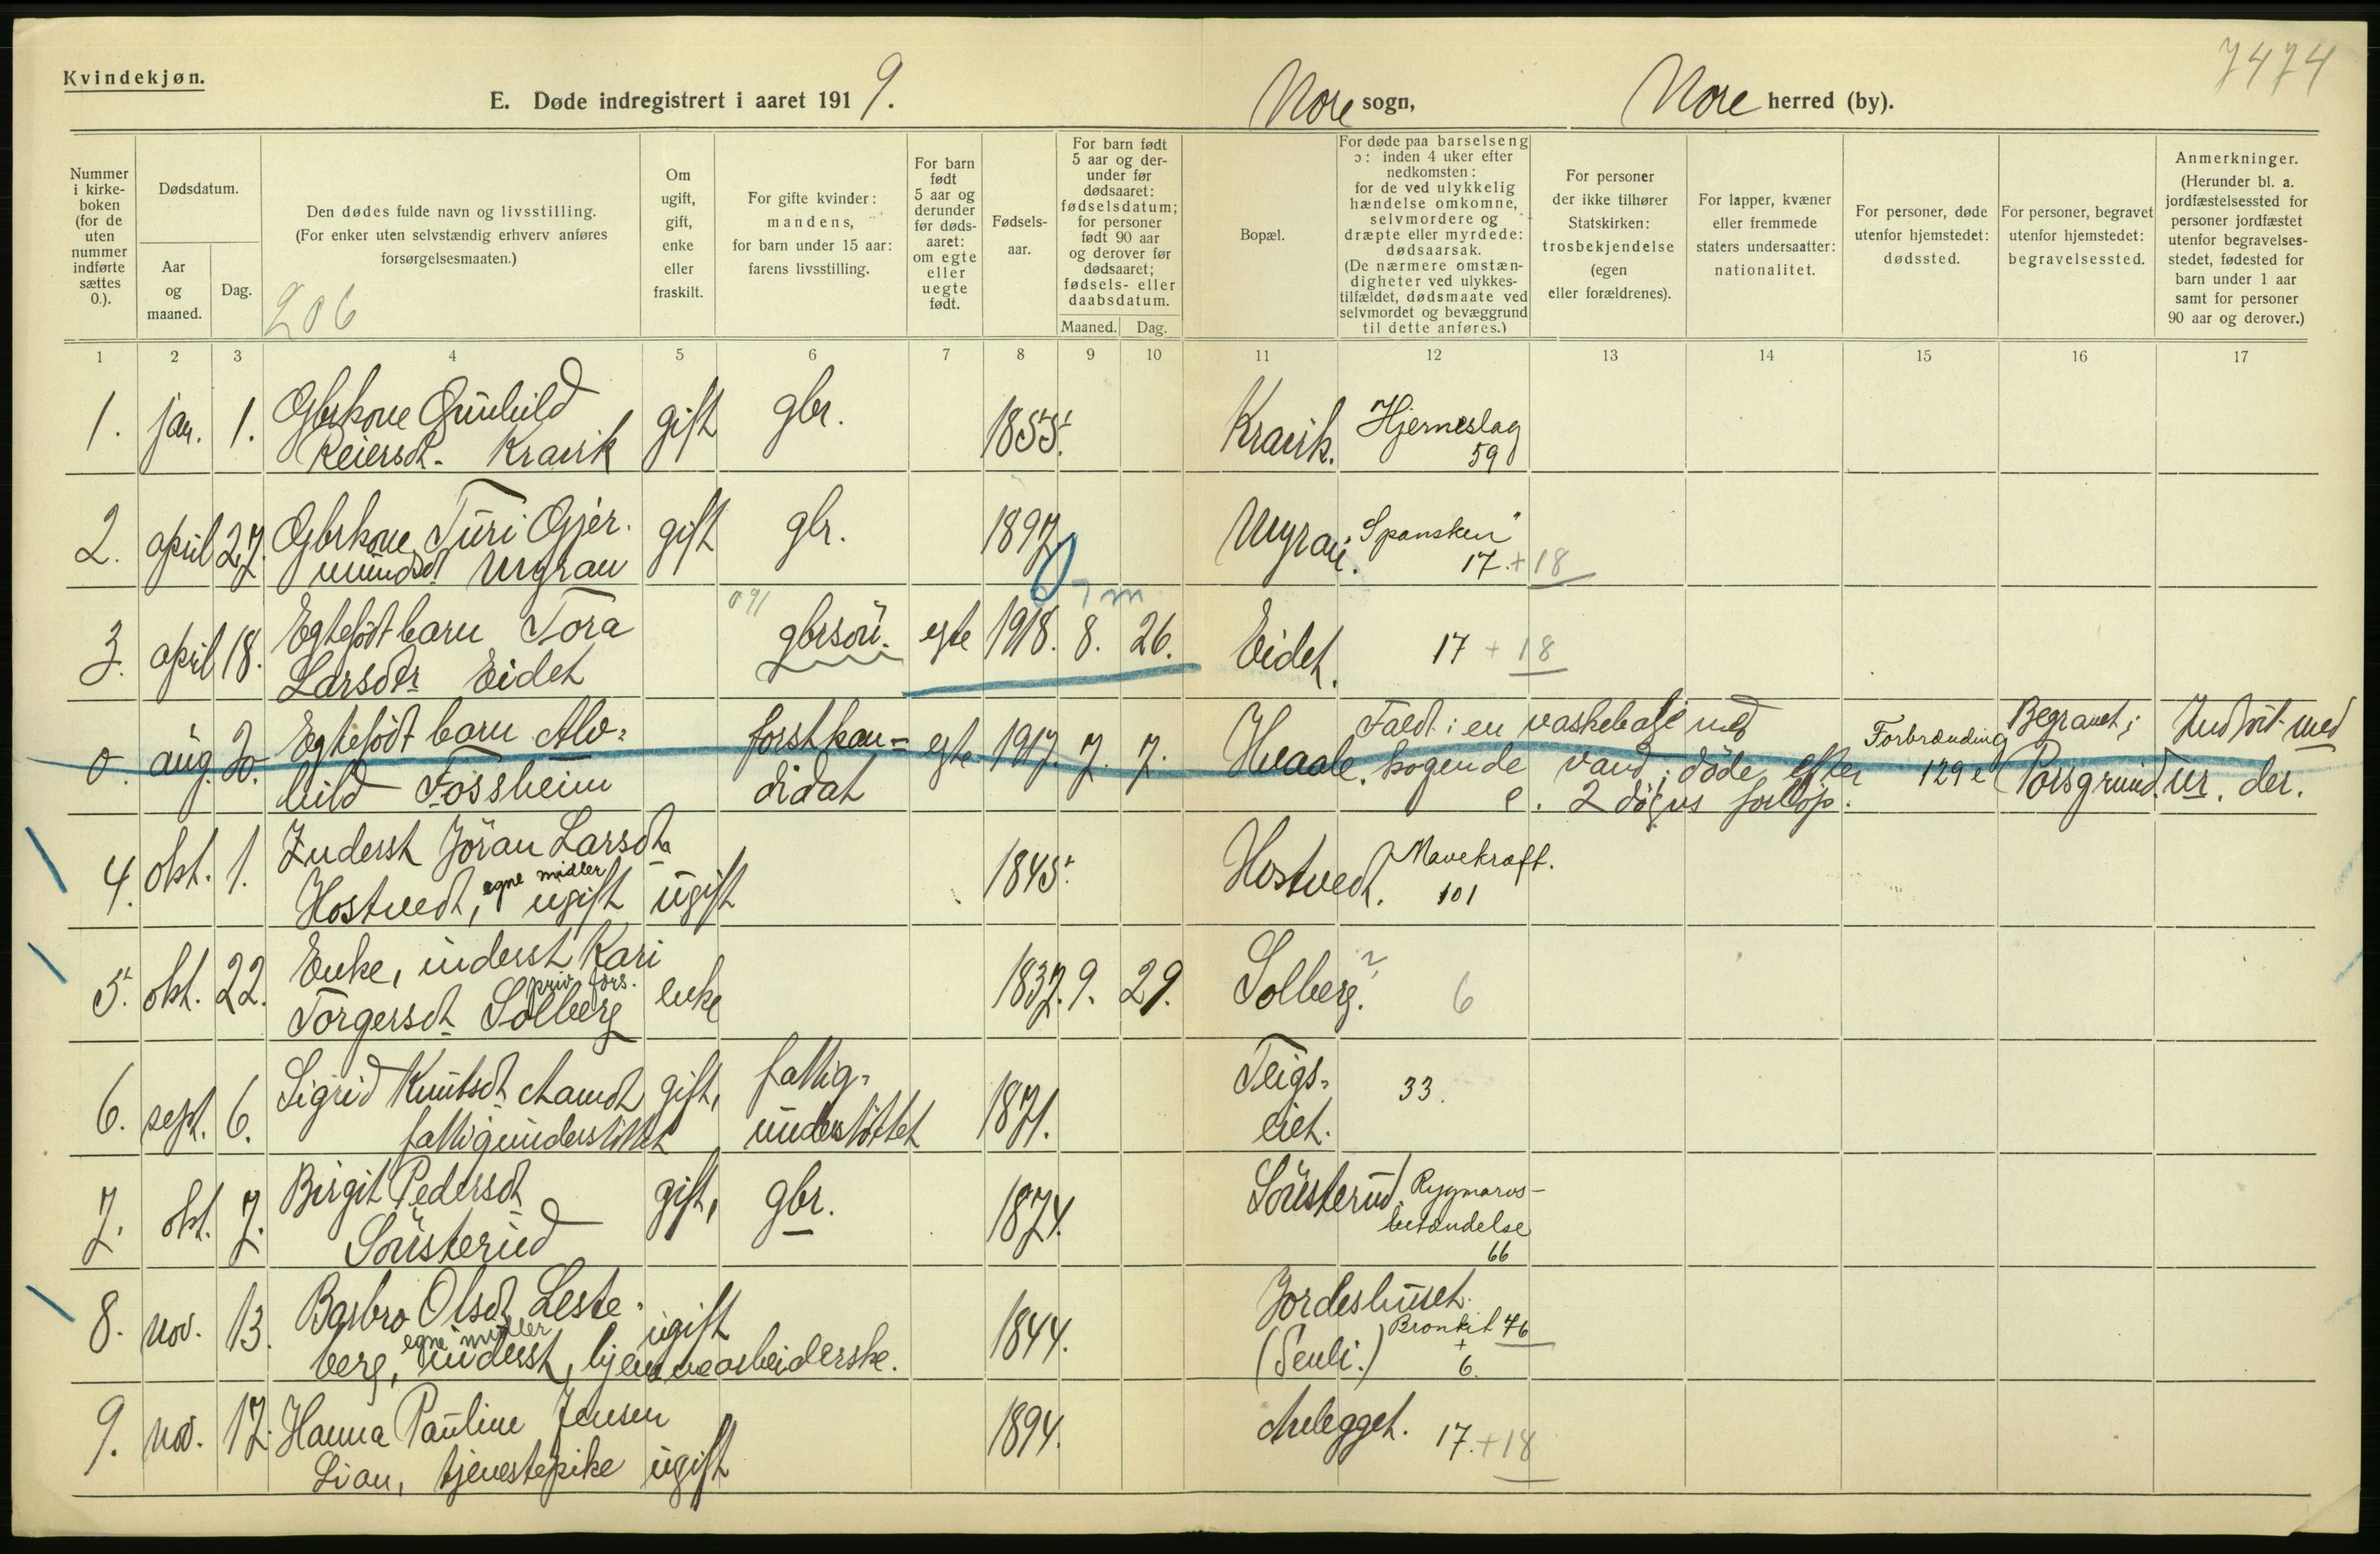 Kvindekjøn.
7474
E. Døde indregistrert i aaret 1919.
Nore sogn,
Nore herred (by).
Nummer i kirke-boken (for de uten nummer indførte sættes 0.).
Dødsdatum.
Aar og maaned.
Dag.
Den dødes fulde navn og livsstilling.
(For enker uten selvstændig erhverv anføres
forsørgelsesmaaten.)
206
Om ugift, gift, enke eller fraskilt.
For gifte kvinder: mandens, for barn under 15 aar: farens livsstilling.
For barn født 5 aar og derunder før døds-aaret: om egte eller uegte født.
Fødsels-aar.
For barn født 5 aar og der-under før dødsaaret: fødselsdatum; for personer født 90 aar og derover før dødsaaret; fødsels- eller daabsdatum.
Maaned. Dag.
Bopæl.
For døde paa barselseng ɔ: inden 4 uker efter nedkomsten: for de ved ulykkelig hændelse omkomne, selvmordere og dræpte eller myrdede: dødsaarsak. (De nærmere omstæn-digheter ved ulykkes-tilfældet, dødsmaate ved selvmordet og bevæggrund til dette anføres.)
For personer der ikke tilhører Statskirken: trosbekjendelse (egen eller forældrenes).
For lapper, kvæner eller fremmede staters undersaatter: nationalitet.
For personer, døde utenfor hjemstedet: dødssted.
For personer, begravet utenfor hjemstedet: begravelsessted.
Anmerkninger. (Herunder bl. a. jordfæstelsessted for personer jordfæstet utenfor begravelses-stedet, fødested for barn under 1 aar samt for personer 90 aar og derover.)
1 2 3 4 5 6 7 8 9 10 11 12 13 14 15 16 17
1. jan. 1. Gbrkone Gunhild gift gbr. 1855. Kravik. Hjerneslag
Reiersdt. Kravik 59
2. april 27. Gbrkone Turi Gjer- gift gbr. 1897. Urgrau. "Spansken"
mundsdt Urgrau 17. + 18
3. april 18. Egtefödt barn Tora gbrsön. egte 1918. 8. 26. Eidet. 17 + 18
Larsdtr Eidet
0. aug. 20. Egtefödt barn Alv- forstkan- egte 1917. 7. 7. Hvaale. Faldt i en vaskebalje med Forbrænding Begravet i Indført med
hild Fossheim didat kogende vand; döde efter 129 e Porsgrund. ur. der.
c. 2 døgns forløp.
4. okt. 1. Inderst Jöran Larsdt. 1845. Hostvedt. Mavekræft.
Hostvedt, egne midler ugift ugift 101
5. okt. 22. Enke, inderst Kari enke 1837. 9. 29. Solberg. ? 6
priv. fors.
Torgersdt Solberg
6. sept. 6. Sigrid Knutsdt Aamdt gift, fattig- 1871. Teigs- 33.
fattigunderstöttet understöttet eiet.
7. okt. 7. Birgit Pedersdt gift, gbr. 1874. Söusterud Rygmarvs-
Söusterud betændelse
66
8. nov. 13. Barbro Olsdt Leste- ugift 1844. Jordeshuset.
egne midler
berg, inderst, hjemmearbeiderske. (Senli.) Bronkit 76
+
6.
9. nov. 17. Hanna Pauline Jensen 1894. Anlegget. 17. + 18
Lian, tjenestepike ugift